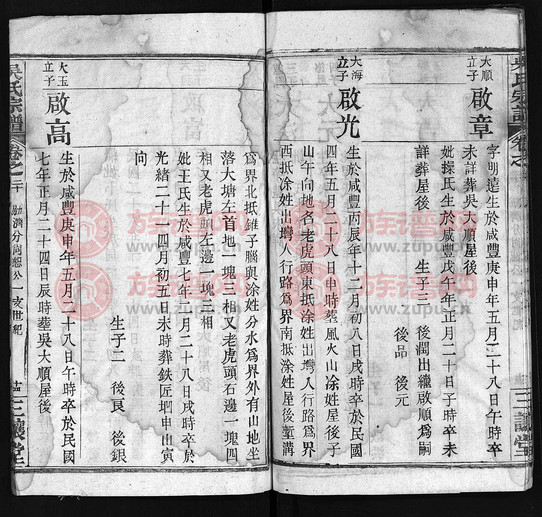 大順
立子
啟章
字明遠生於咸豐庚申年五月二十八日午時卒
未詳葬吳大順屋後
妣操氏生於咸豐戊午年正月二十日子時卒未
詳葬屋後
生子三 後潤出繼啟順爲嗣
後品 後元
大海
立子
啟光
生於咸豐丙辰年十二月初八日戌時卒於民國
四年五月二十八日申時葬風火山涂姓屋後子
山午向地名老虎頭東抵涂姓出塆人行路爲界
西抵涂姓出塆人行路爲界南抵涂姓屋後塹溝
爲界北抵錐子腦與涂姓分水爲界外有山地坐
落大塘左首地一塊三相又老虎頭石邊一塊四
相又老虎頭左邊一塊三相
妣王氏生於咸豐七年二月二十八日戌時卒於
光緒二十一年四月初五日未時葬鉄匠塆申出寅
向
生子二 後良 後銀
大玉
立子
啟高
生於咸豐庚申年五月二十八日午時卒於民國
七年正月二十四日辰時葬吳大順屋後
吳氏宗譜
卷之二十
三讓堂
族譜网
www.zupu.cn